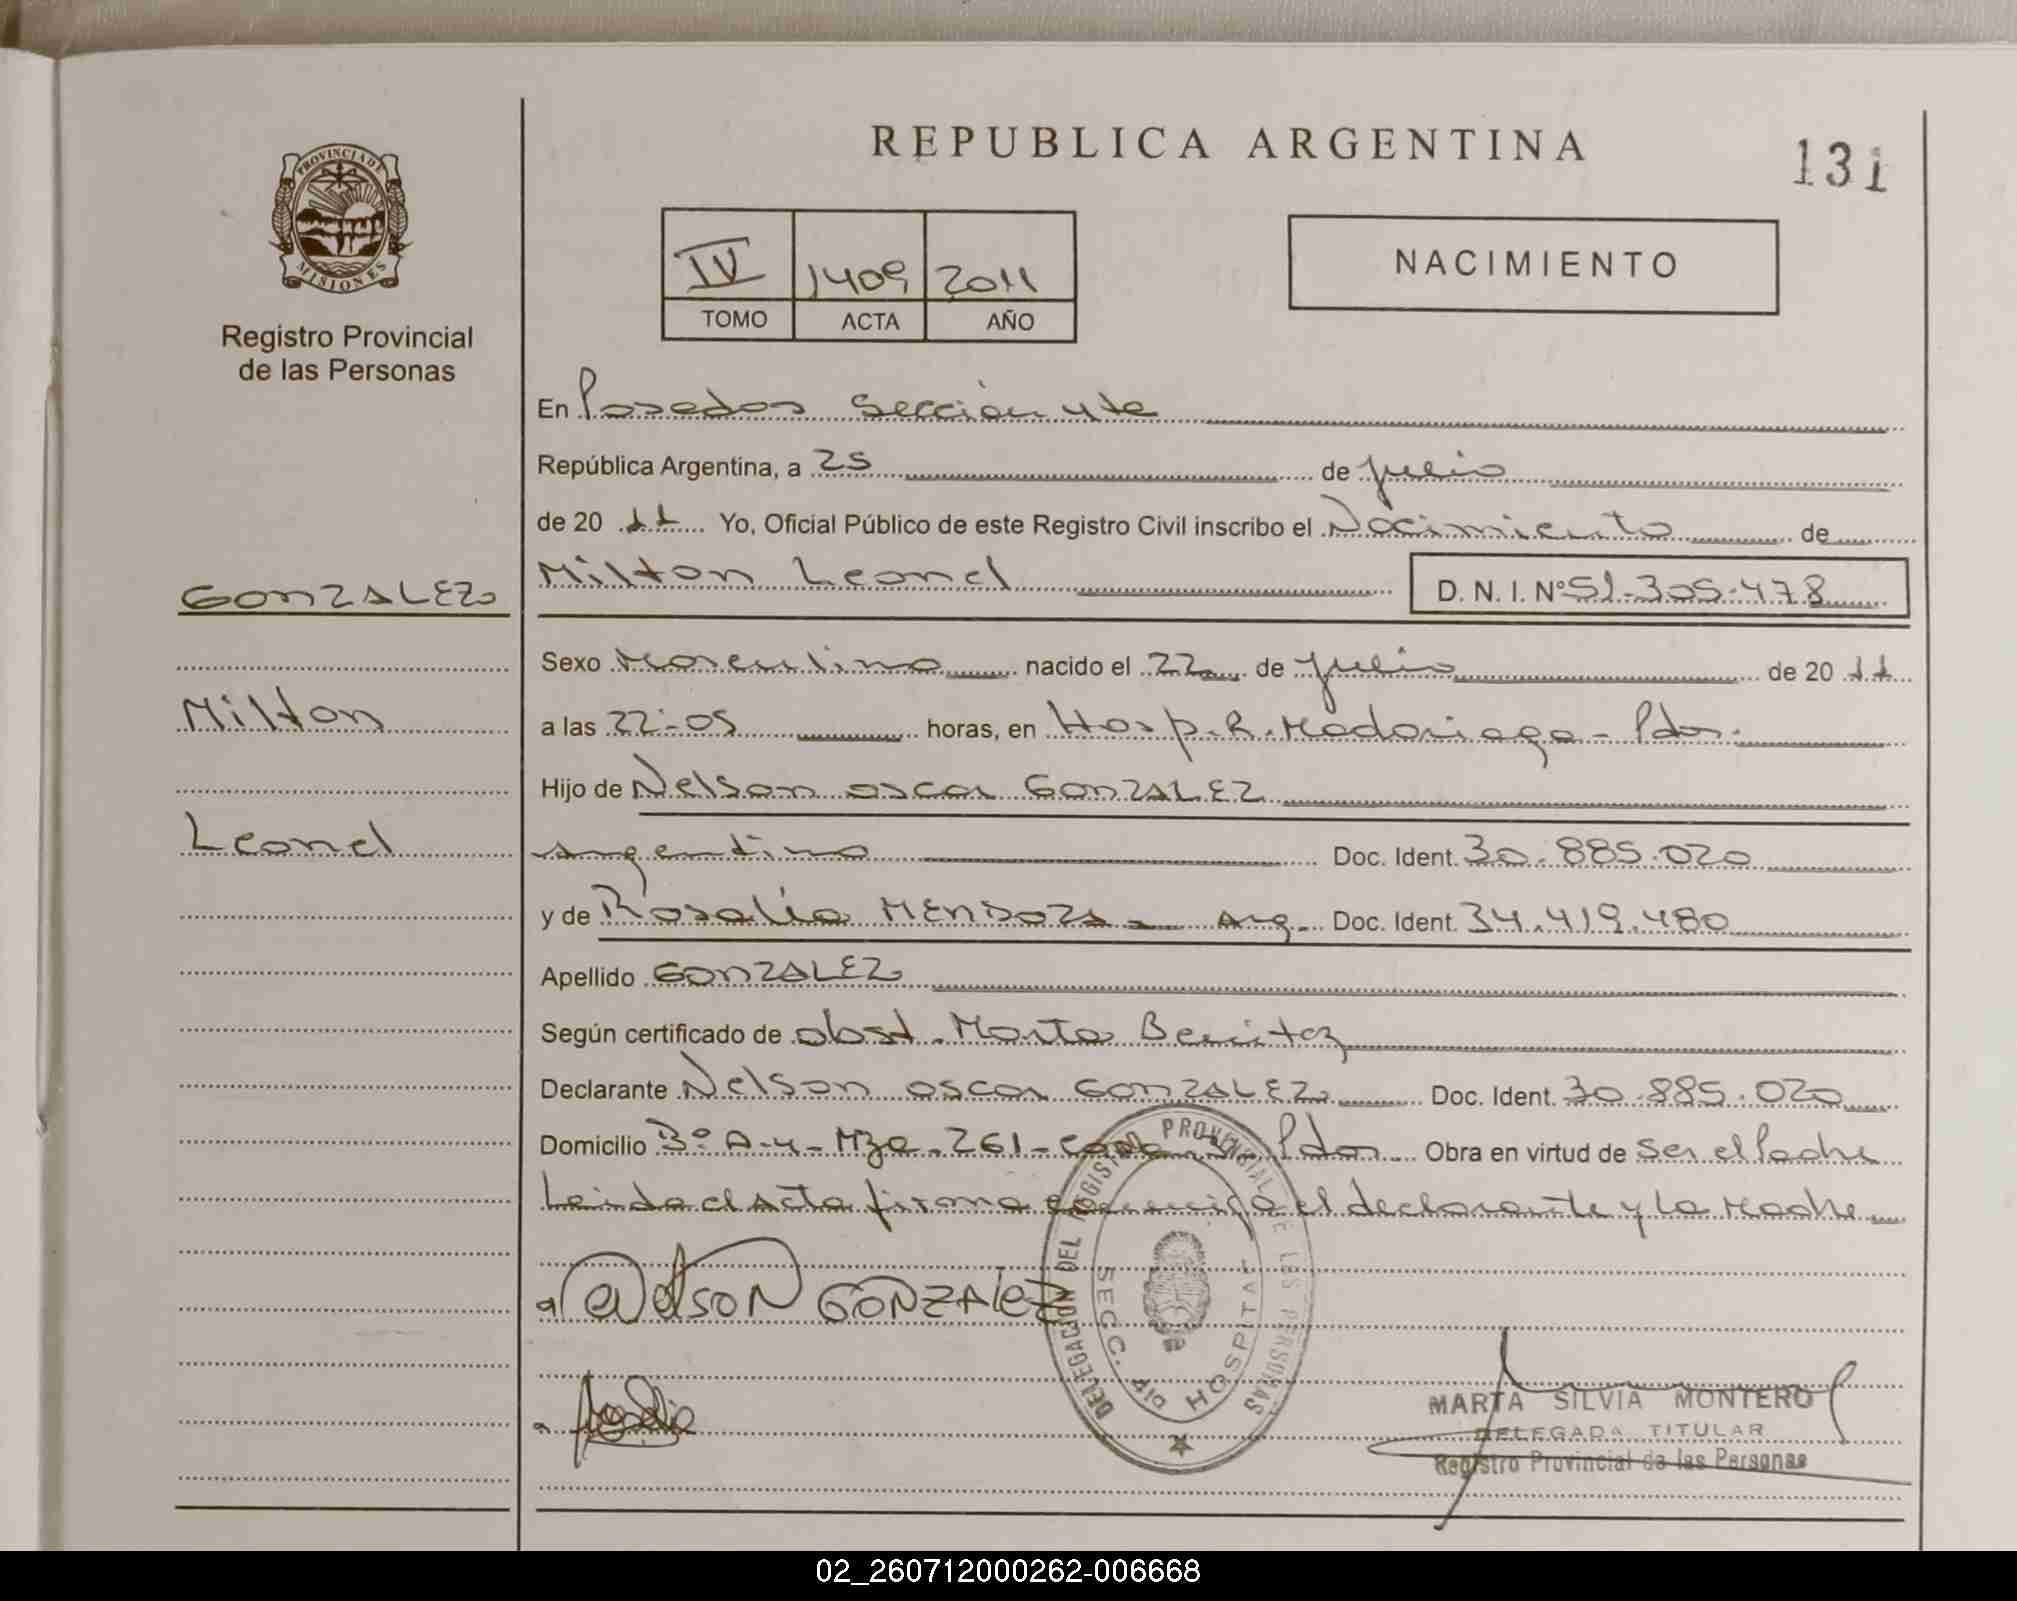 REPUBLICA ARGENTINA
131
PROVINCIA DE
MISIONES
Registro Provincial
de las Personas
IV 1409 2011
TOMO ACTA AÑO
NACIMIENTO
En Posadas Sección 4ta
República Argentina, a 25 de julio
de 20 11 Yo, Oficial Público de este Registro Civil inscribo el Nacimiento de
GONZALEZ
Milton Leonel D. N. I. Nº 51.305.478
Sexo Masculino nacido el 22 de julio de 20 11
Milton
a las 22:05 horas, en Hosp. R. Madariaga - Pdas.
Hijo de Nelson Oscar GONZALEZ
Leonel
Argentino Doc. Ident. 30.885.020
y de Rosalia MENDOZA - Arg. Doc. Ident. 34.419.480
Apellido GONZALEZ
Según certificado de obst. Marta Benitez
Declarante Nelson Oscar GONZALEZ Doc. Ident. 30.885.020
Domicilio Bº A-4 - Mza. 261 - Casa Pdas. Obra en virtud de ser el Padre
Leida el Acta firma el declarante y la Madre
Nelson GONZALEZ
DELEGACION DEL REGISTRO PROVINCIAL DE LAS PERSONAS
SECC. 4ta HOSPITAL
MARTA SILVIA MONTERO
DELEGADA TITULAR
Registro Provincial de las Personas
02_260712000262-006668